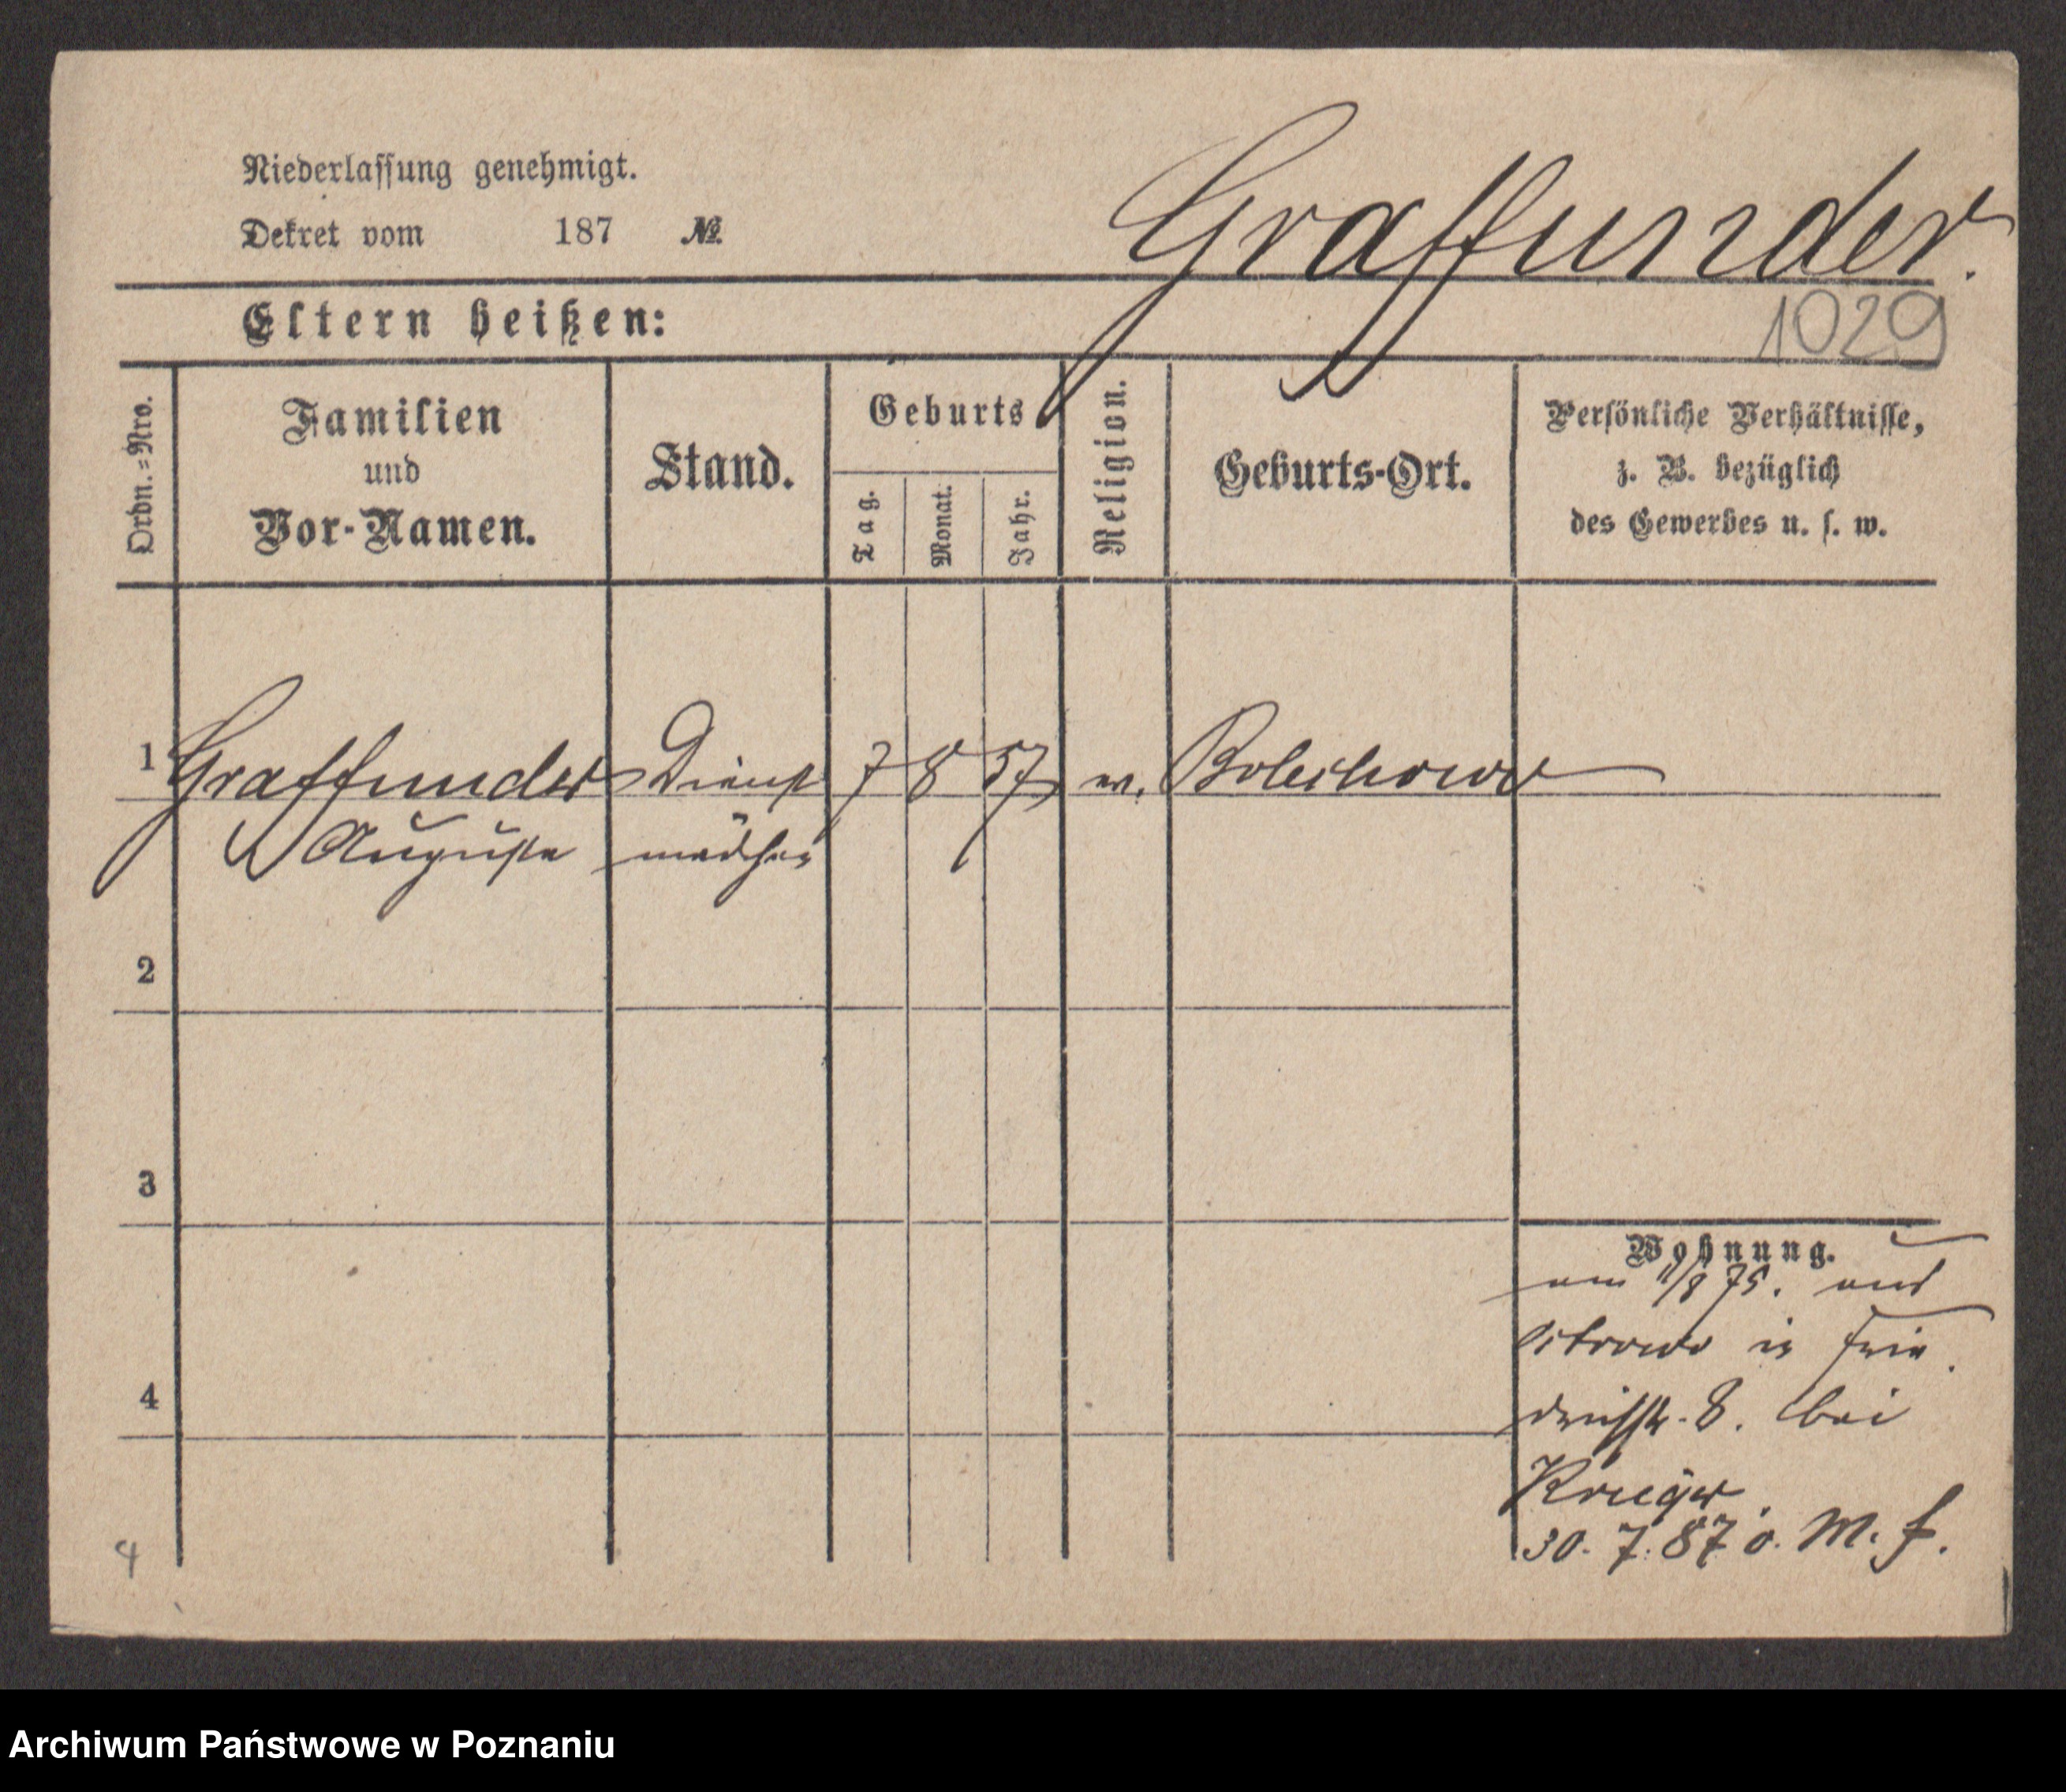 Niederlassung genehmigt.
Dekret vom 187 №
Graffunder.
1029
Eltern heißen:
Ordn.=Nro.
Familien
und
Vor-Namen.
Stand.
Geburts
Tag.
Monat.
Jahr.
Religion.
Geburts-Ort.
Persönliche Verhältnisse,
z. B. bezüglich
des Gewerbes u. s. w.
1 Graffunder Dienst 7 8 57 ev. Bolechowo
Auguste mädchen
2
3
4
Wohnung.
am 11/8 75. aus
Ostrowo in Frie
drichstr. 8. bei
Krueger
30. 7. 87 o. M. f.
4
Archiwum Państwowe w Poznaniu